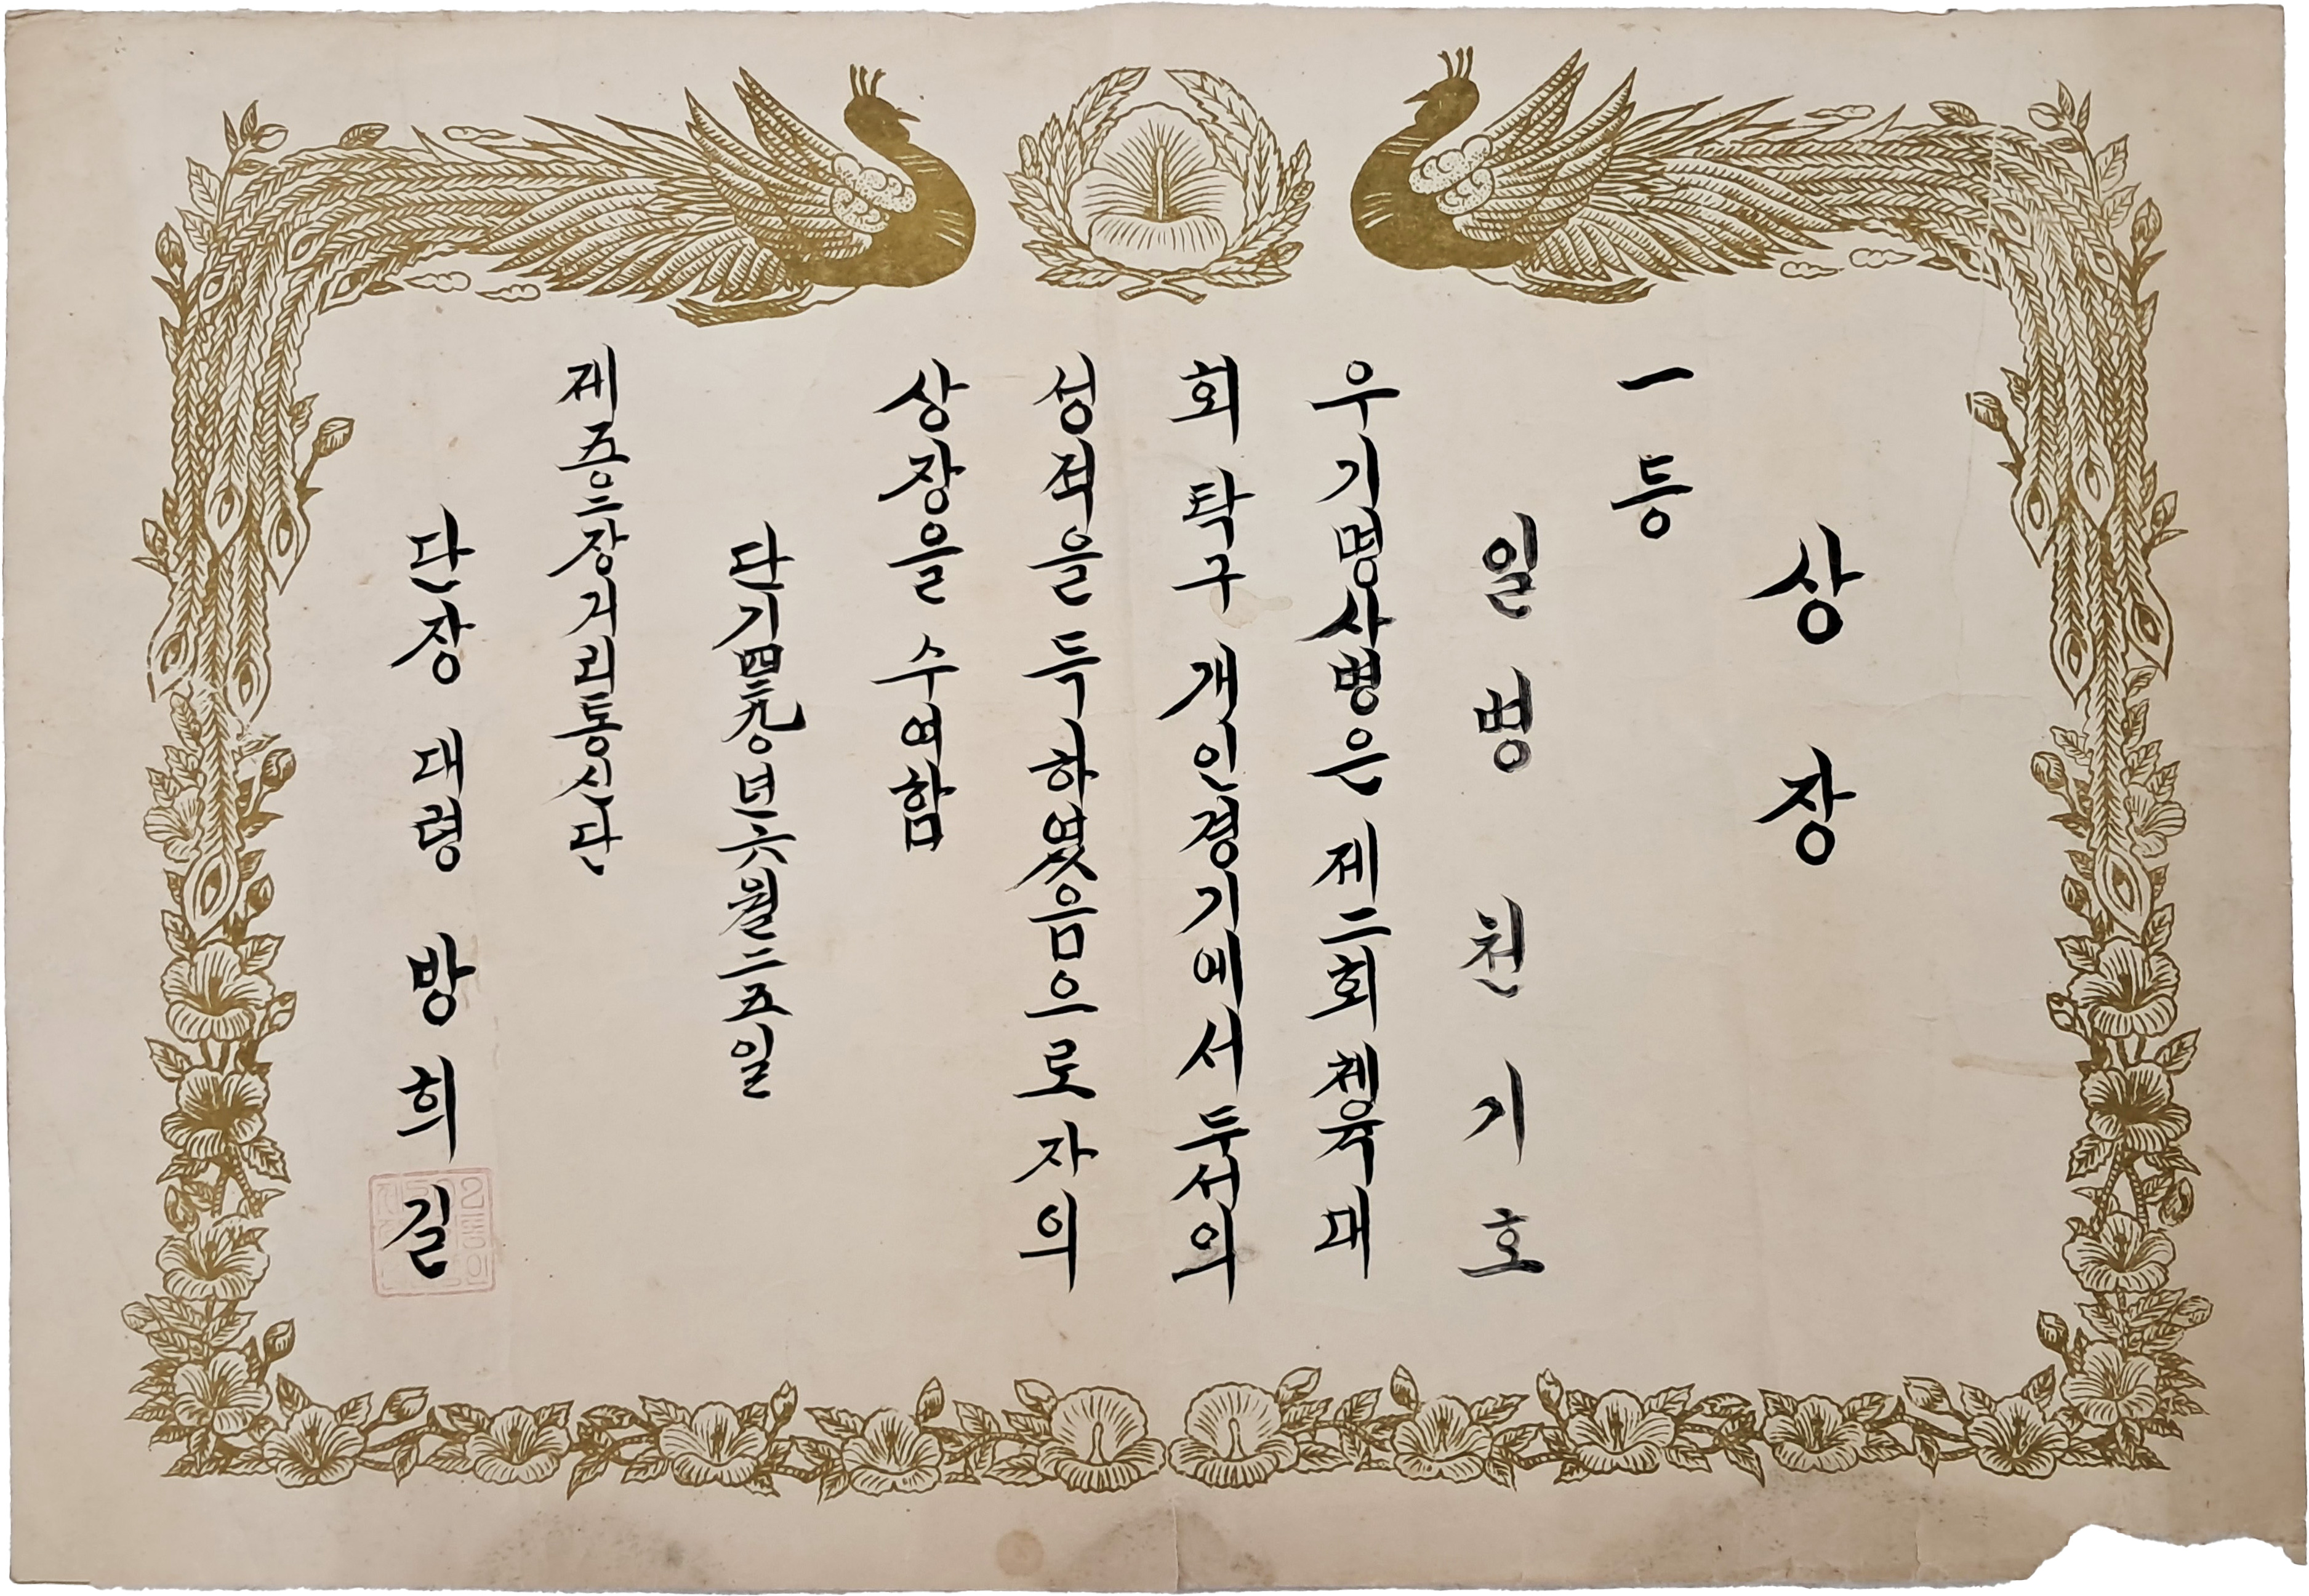 상장
一등
일병 천기호
우기명사병은 제二회 체육대
회 탁구 개인경기에서 두서의
성적을 득하였음으로 자의
상장을 수여함
단기四二九〇년六월二五일
제五〇二장거리통신단
단장 대령 방희길